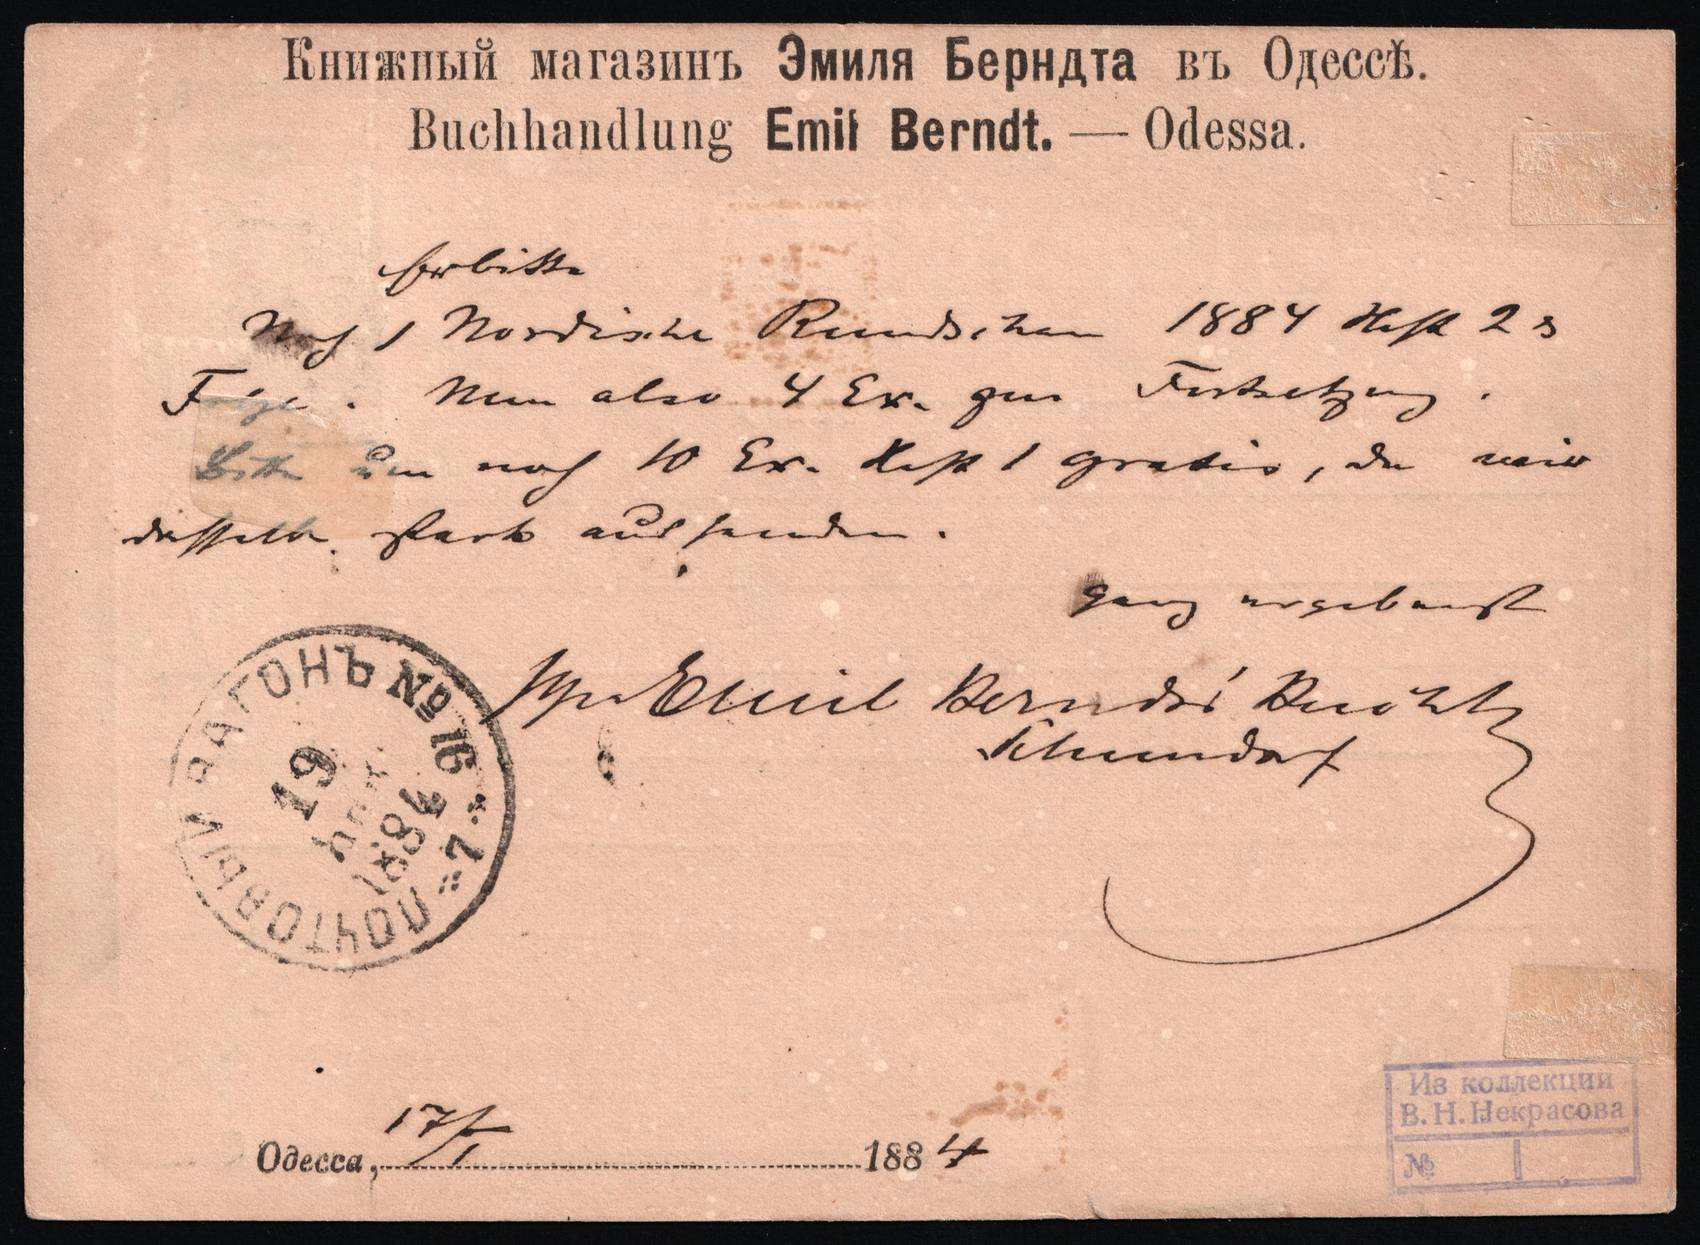 Книжный магазинъ Эмиля Берндта въ Одессѣ.
Buchhandlung Emil Berndt. — Odessa.
Erbitte
Noch 1 Nordische Rundschau 1884 Heft 2 &
Folge. Nun also 4 Ex. zur Fortsetzung.
Bitte um noch 10 Ex. Heft 1 gratis, da wir
dasselbe stark aussenden.
ganz ergebenst
Emil Berndts' Buchh
ПОЧТОВЫЙ ВАГОНЪ № 16
19
1884
7
Одесса, 17/I 1884
Из коллекции
В. Н. Некрасова
№